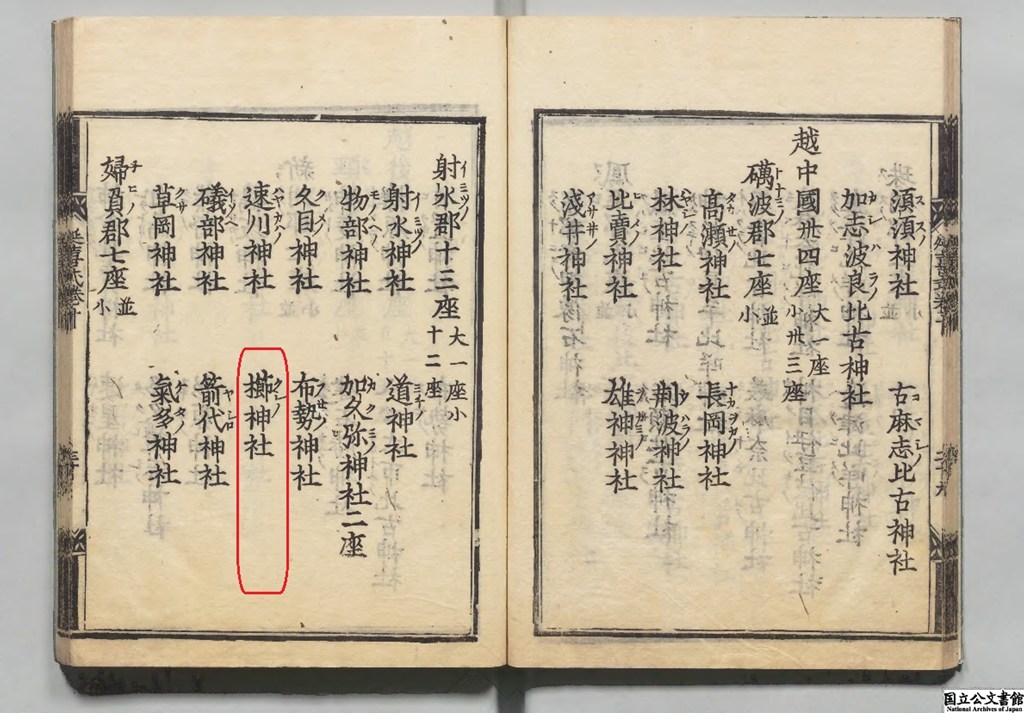 須須神社 古麻志比古神社
加志波良比古神社
越中國丗四座 大一座 小丗三座
礪波郡七座 並小
高瀬神社 長岡神社
林神社 荆波神社
比賣神社 雄神神社
淺井神社
射水郡十三座 大一座小十二座
射水神社 道神社
物部神社 加久弥神社二座
久目神社 布勢神社
速川神社 櫛神社
礒部神社 箭代神社
草岡神社 氣多神社
婦負郡七座 並小
国立公文書館
National Archives of Japan